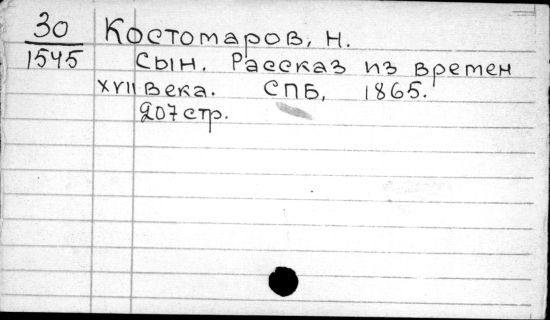 30 Костомаров, Н.
1545 Сын. Рассказ из времен
XVII века. СПБ, 1865.
207 стр.